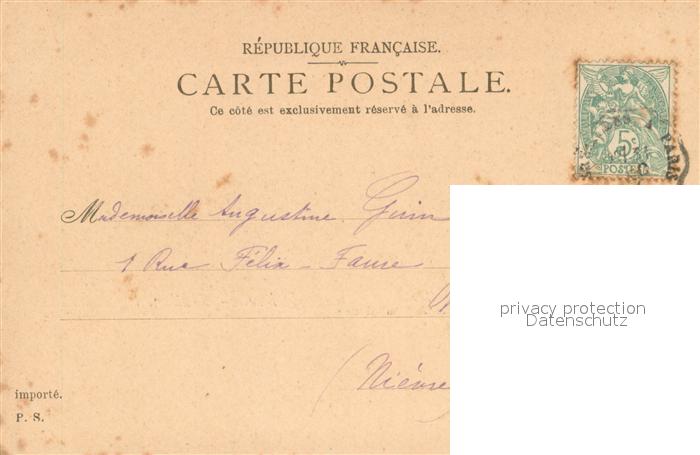 RÉPUBLIQUE FRANÇAISE.
CARTE POSTALE.
Ce côté est exclusivement réservé à l'adresse.
5c
POSTES
PARIS
Mademoiselle Augustine
1 Rue Félix-Faure
(Nièvre
privacy protection
Datenschutz
importé.
P. S.